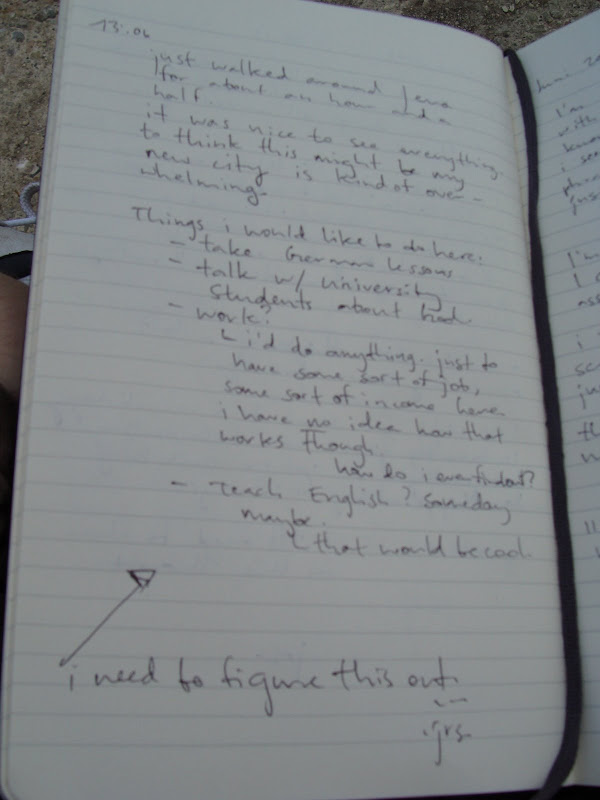 13:06
just walked around Jena
for about an hour and a
half.
it was nice to see everything.
to think this might be my
new city is kind of over-
whelming.
Things i would like to do here:
- take German lessons
- talk w/ university
students about
- work?
i'd do anything. just to
have some sort of job,
some sort of income here
i have no idea how that
works though.
how do i even find out?
- Teach English? Someday
maybe.
that would be cool.
i need to figure this out.
juni
I'm
with
i
jus
I'm
I
ass
i
ju
th